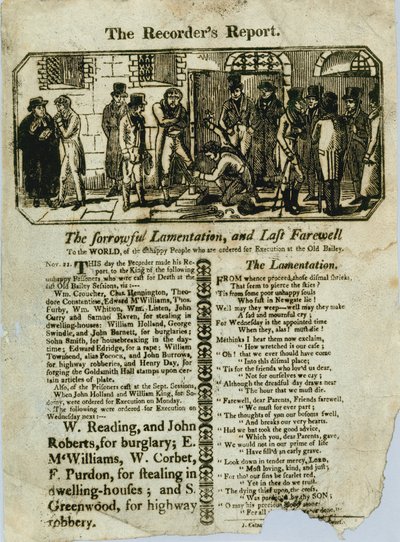 The Recorder's Report.
The sorrowful Lamentation, and Last Farewell
To the WORLD, of the unhappy People who are ordered for Execution at the Old Bailey.
Nov. 22. THIS day the Recorder made his Re-
port to the King of the following
unhappy Prisoners, who were cast for Death at the
last Old Bailey Sessions, viz:—
Wm. Croucher, Chas. Hennington, Theodore
Constantine, Edward M'Williams, Thos.
Furby, Wm. Whitton, Wm. Listen, John
Carry and Samuel Raven, for stealing in
dwelling-houses: William Holland, George
Swindle, and John Barnett, for burglaries;
John Smith, for housebreaking in the day-
time; Edward Edridge, for a rape; William
Townsend, alias Pocock, and John Burrows,
for highway robberies, and Henry Day, for
forging the Goldsmith Hall stamps upon cer-
tain articles of plate.
Also, of the Prisoners cast at the Sept. Sessions,
When John Holland and William King, for So-
domy, were ordered for Execution on Monday.
The following were ordered for Execution on
Wednesday next:—
W. Reading, and John
Roberts, for burglary; E.
McWilliams, W. Corbet,
F. Purdon, for stealing in
dwelling-houses; and S.
Greenwood, for highway
robbery.
The Lamentation.
FROM whence proceed those dismal shrieks,
That seem to pierce the skies?
'Tis from some poor unhappy souls
Who just in Newgate lie!
Well may they weep—well may they make
A sad and mournful cry;
For Wednesday is the appointed time
When they, alas! must die!
Methinks I hear them now exclaim,
"How wretched is our case;
"Oh! that we ever should have come
Into this dismal place;
'Tis for the friends who lov'd us dear,
Not for ourselves we cry;
"Although the dreadful day draws near
The hour that we must die.
"Farewell, dear Parents, Friends farewell,
"We must for ever part;
"The thoughts of you our bosoms swell,
"And breaks our very hearts.
"Had we but took the good advice,
"Which you, dear Parents, gave,
"We would not in our prime of life
Have fill'd an early grave.
"Look down in tender mercy, LORD,
"Most loving, kind, and just;
"For tho' our sins be scarlet red,
"Yet in thee do we trust.
"The dying thief upon the cross,
"Was pardon'd by thy SON;
"O may his precious blood atone
"For all we have done."